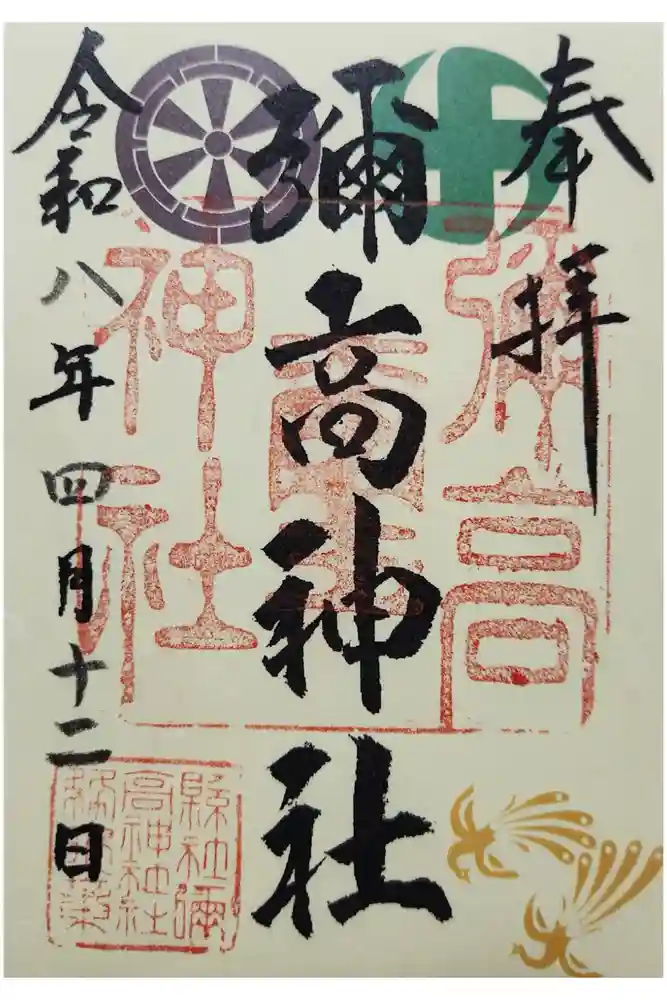 奉拝
彌高神社
令和八年四月十二日
彌高
神社
縣社彌
高神社社